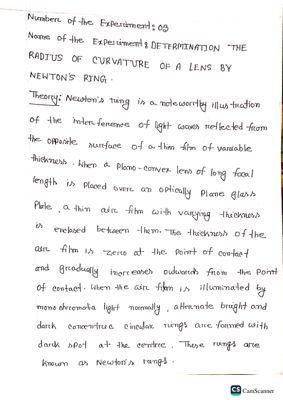 Number of the Experiment: 03
Name of the Experiment: DETERMINATION THE
RADIUS OF CURVATURE OF A LENS BY
NEWTON'S RING.
Theory: Newton's ring is a noteworthy illustration
of the interference of light waves reflected from
the opposite surface of a thin film of variable
thickness. When a Plano-convex lens of long focal
length is placed over an optically plane glass
Plate, a thin air film with varying thickness
is enclosed between them. The thickness of the
air film is zero at the point of contact
and gradually increases outwards from the point
of contact. When the air film is illuminated by
monochromatic light normally, alternate bright and
dark concentric circular rings are formed with
dark spot at the centre. These rings are
known as Newton's rings.
CS CamScanner